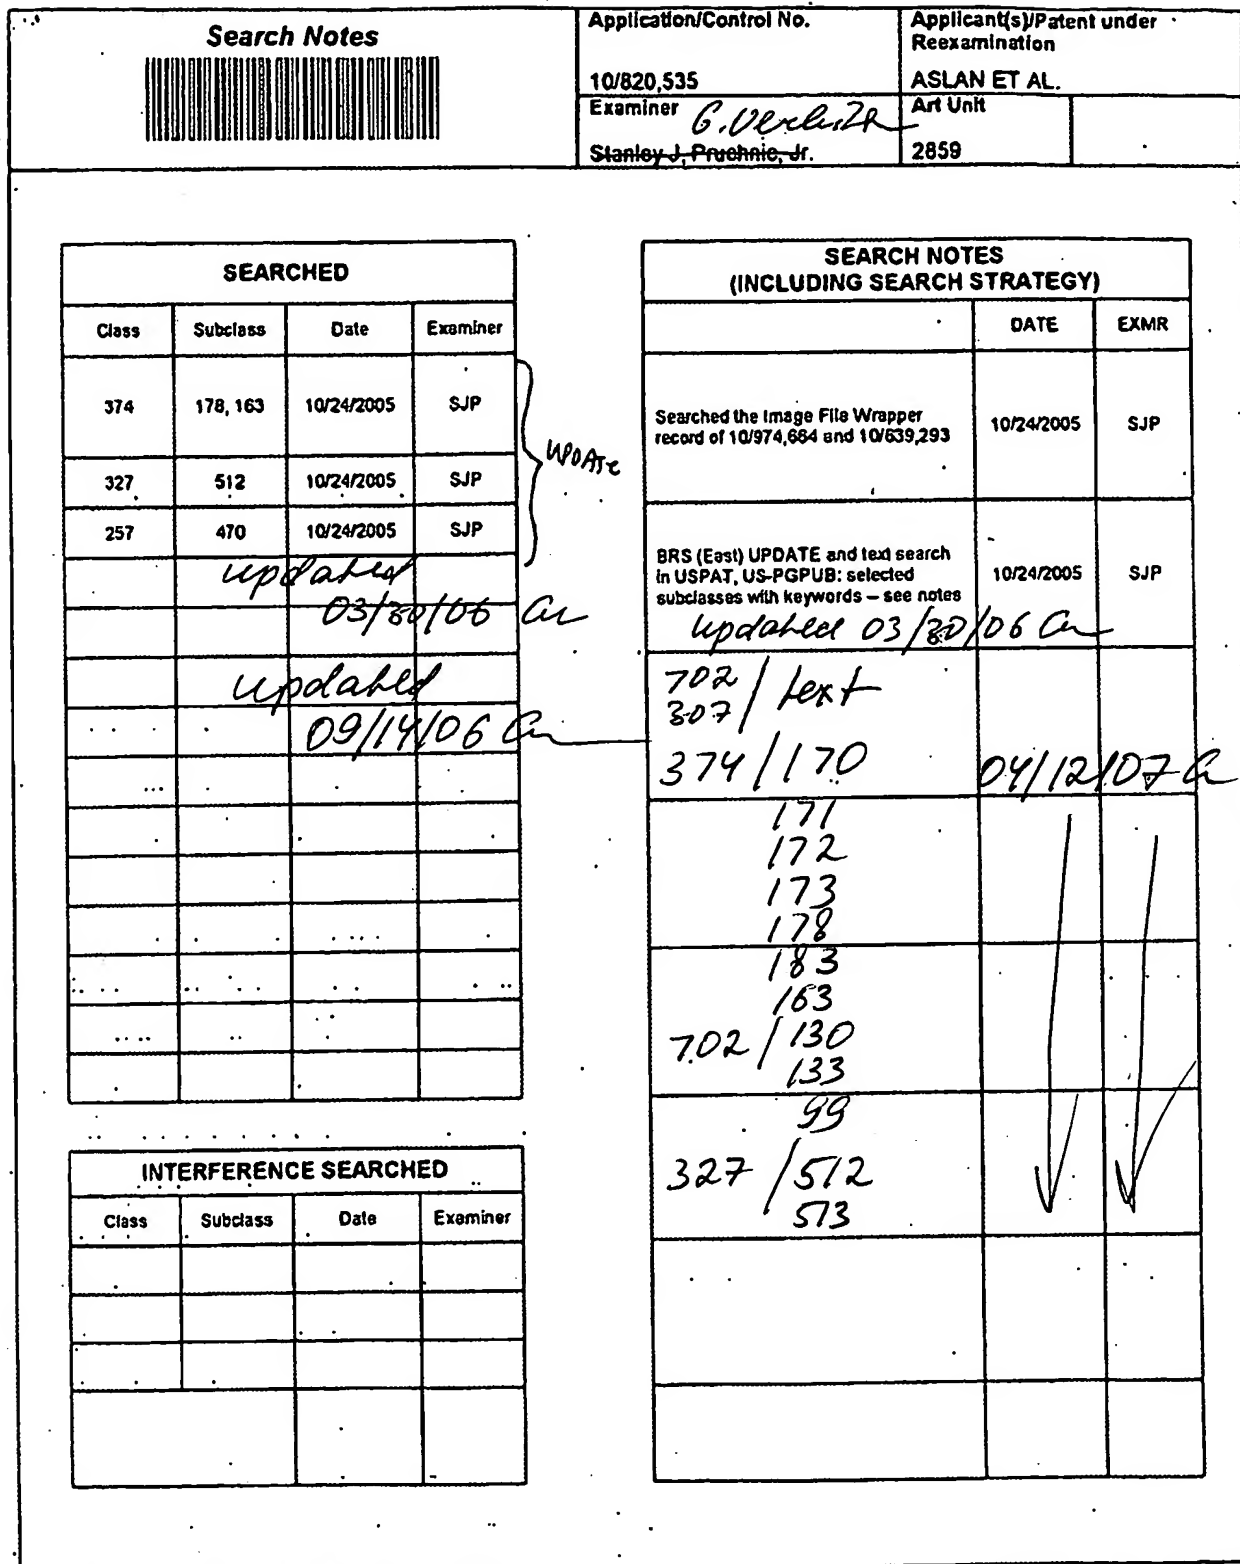 Search Notes
Application/Control No.
10/820,535
Applicant(s)/Patent under
Reexamination
ASLAN ET AL.
Examiner
Stanley J. Pruchnic, Jr.
Art Unit
2859
SEARCHED
Class Subclass Date Examiner
374 178, 163 10/24/2005 SJP
327 512 10/24/2005 SJP
257 470 10/24/2005 SJP
UPDATE
updated
03/30/06
updated
09/14/06
INTERFERENCE SEARCHED
Class Subclass Date Examiner
SEARCH NOTES
(INCLUDING SEARCH STRATEGY)
DATE EXMR
Searched the Image File Wrapper
record of 10/974,664 and 10/639,293
10/24/2005 SJP
BRS (East) UPDATE and text search
in USPAT, US-PGPUB: selected
subclasses with keywords – see notes
10/24/2005 SJP
updated 03/30/06
702
307 / text
374/170 04/12/07
171
172
173
178
183
163
702/130
133
99
327/512
513